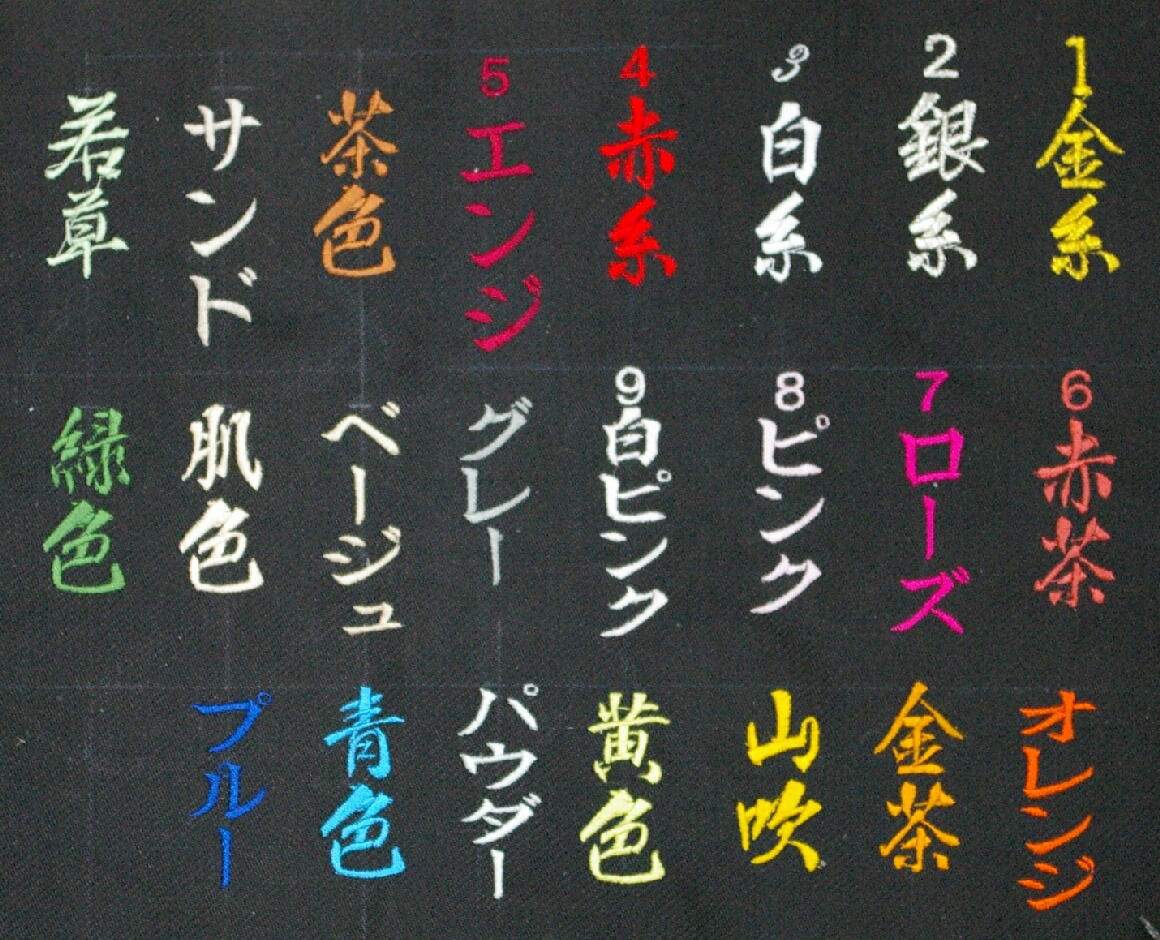 1金糸
2銀糸
3白糸
4赤糸
5エンジ
茶色
サンド
若草
6赤茶
7ローズ
8ピンク
9白ピンク
グレー
ベージュ
肌色
緑色
オレンジ
金茶
山吹
黄色
パウダー
青色
プルー